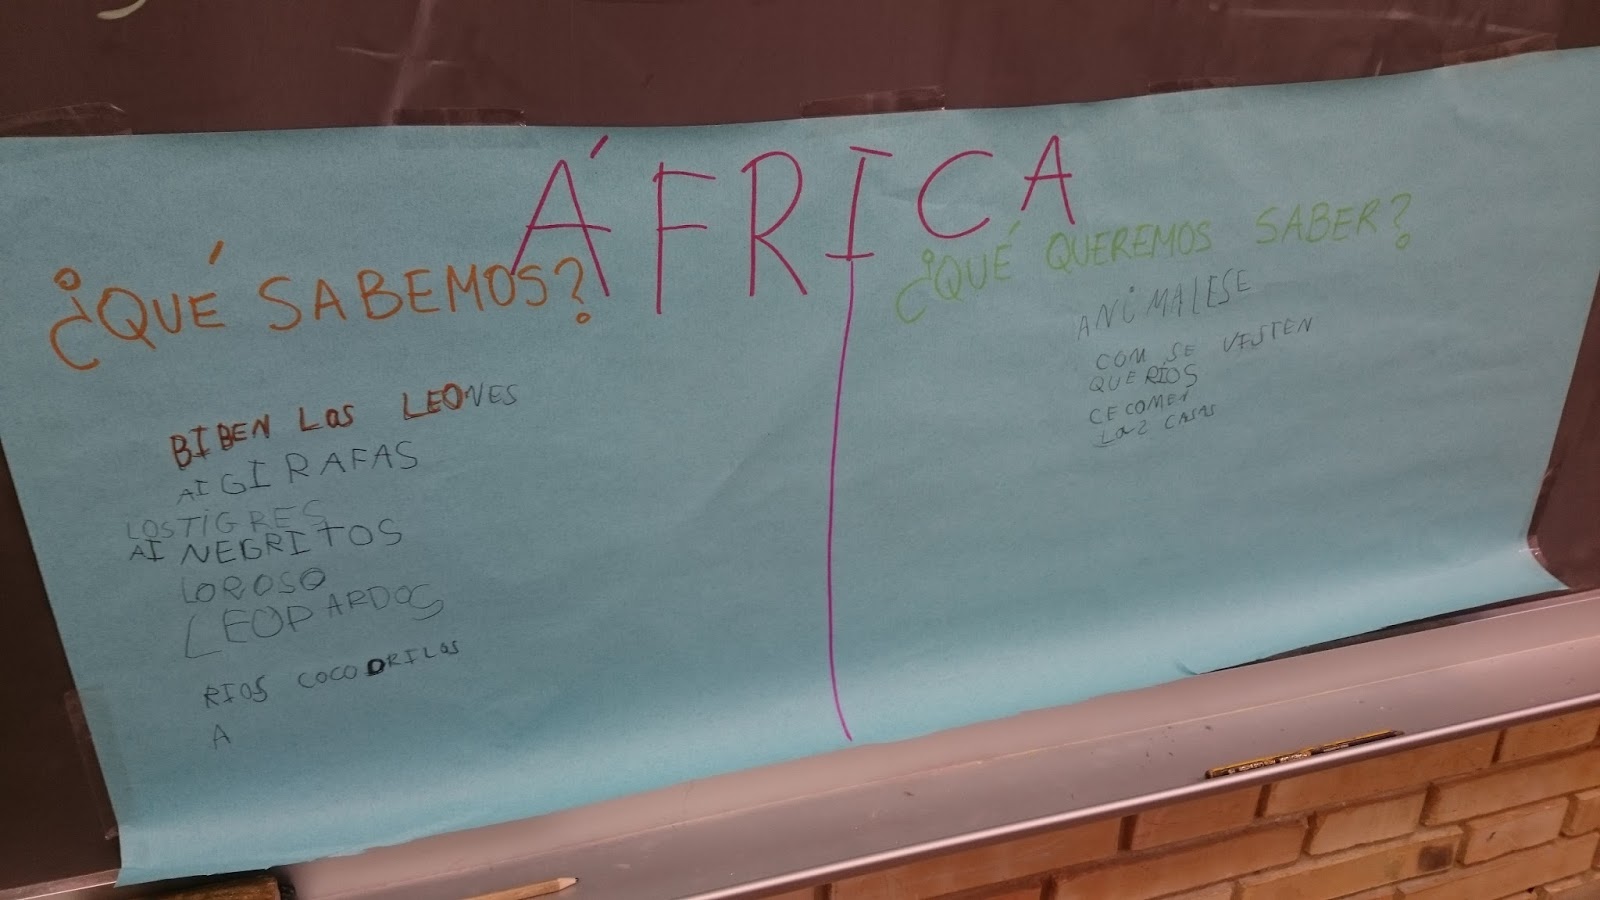 ÁFRICA
¿QUÉ SABEMOS?
BIBEN Los LEONES
AI GIRAFAS
LOSTIGRES
AI NEGRITOS
LOROSO
LEOPARDOS
RIOS COCODRILOS
A
¿QUÉ QUEREMOS SABER?
ANIMALESE
COM SE VISTEN
QUE RÍOS
CECOMEN
Las CASAS